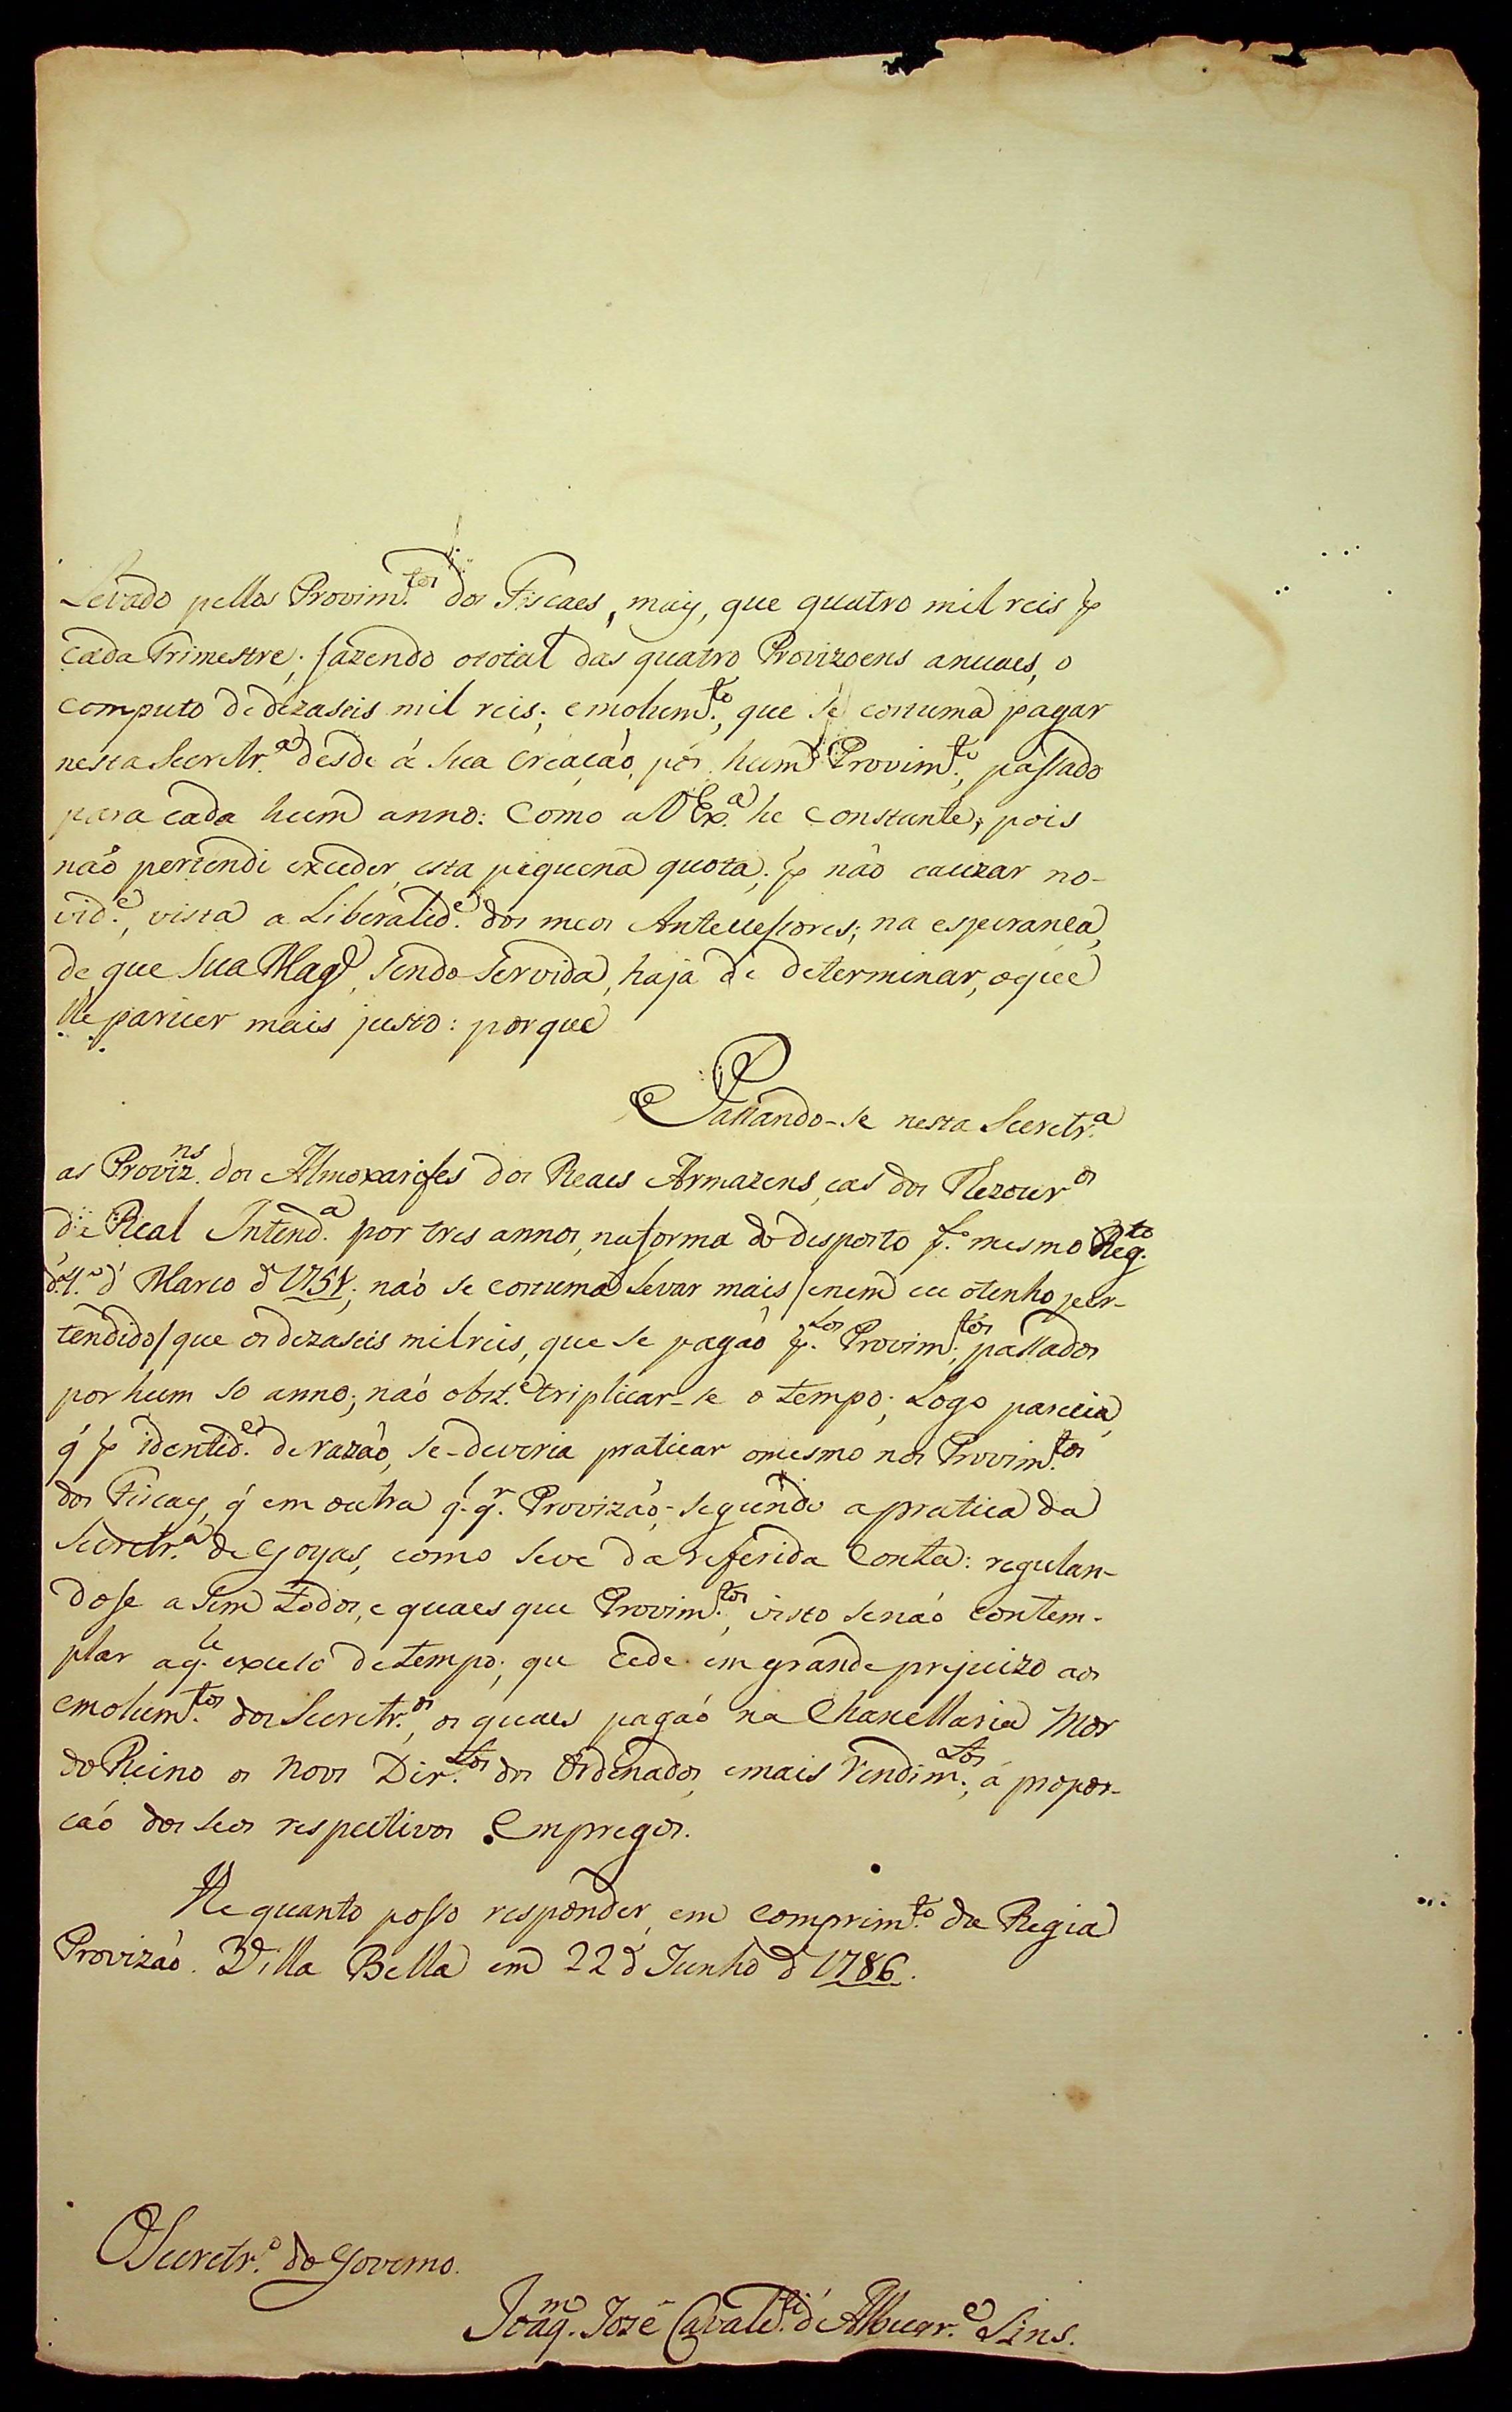 Levado pellos Provim.tos dos Fiscaes, mais, que quatro mil reis p
cada Trimestre; fazendo ototal das quatro Provizoens anuaes, o
computo de dezaseis mil reis; emolum.to, que se costuma pagar
nesta Secretr.a desde á sua Creação, pór hum Provim.to, passado
para cada hum anno: Como a V Ex.a he constante; pois
não pertendi exceder esta piquena quota; p não cauzar no-
vid.e, vista a Liberalid.e dos meos Antecessores; na esperança,
de que Sua Mag.e, Sendo Servida, haja de determinar, oque
lhe parecer mais justo: porque
Passando-se nesta Secretr.a
as Proviz.ns dos Almoxarifes dos Reaes Armazens, eas dos Thezour.os
da Real Intend.a por tres annos, naforma do desposto p.lo mesmo Reg.to
d' Marco d 1751; não se costuma Levar mais /enem eu otenho per-
tendido/ que os dezaseis milreis, que se pagão p.los Provim.tos, passados
por hum só anno; não obst.e triplicar-se o tempo; Logo parecia,
q' p identid.e de razão, se-deveria praticar omesmo nos Provim.tos
dos Fiscaes, q' em outra q.l q.r Provizão; segundo apratica da
Secretr.a de Goyas, como seve da referida Conta: regulan-
dose asim todos, e quaes que Provim.tos, visto senão contem-
plar aq.le excesso detempo; que cede em grande prejuizo aos
emolum.tos dos Secretr.os, os quaes pagão na Chancellaria Mor
do Reino os Novos Dir.tos dos Ordenados, emais Rendim.tos, á propor-
cão dos seos respectivos Empregos.
He quanto posso responder, em comprim.to da Regia
Provizão. Villa Bella em 22 d Junho d 1786.
O Secretr.o do Governo.
Joaq.m José Cavalc.ti d' Albuqr.e Lins.